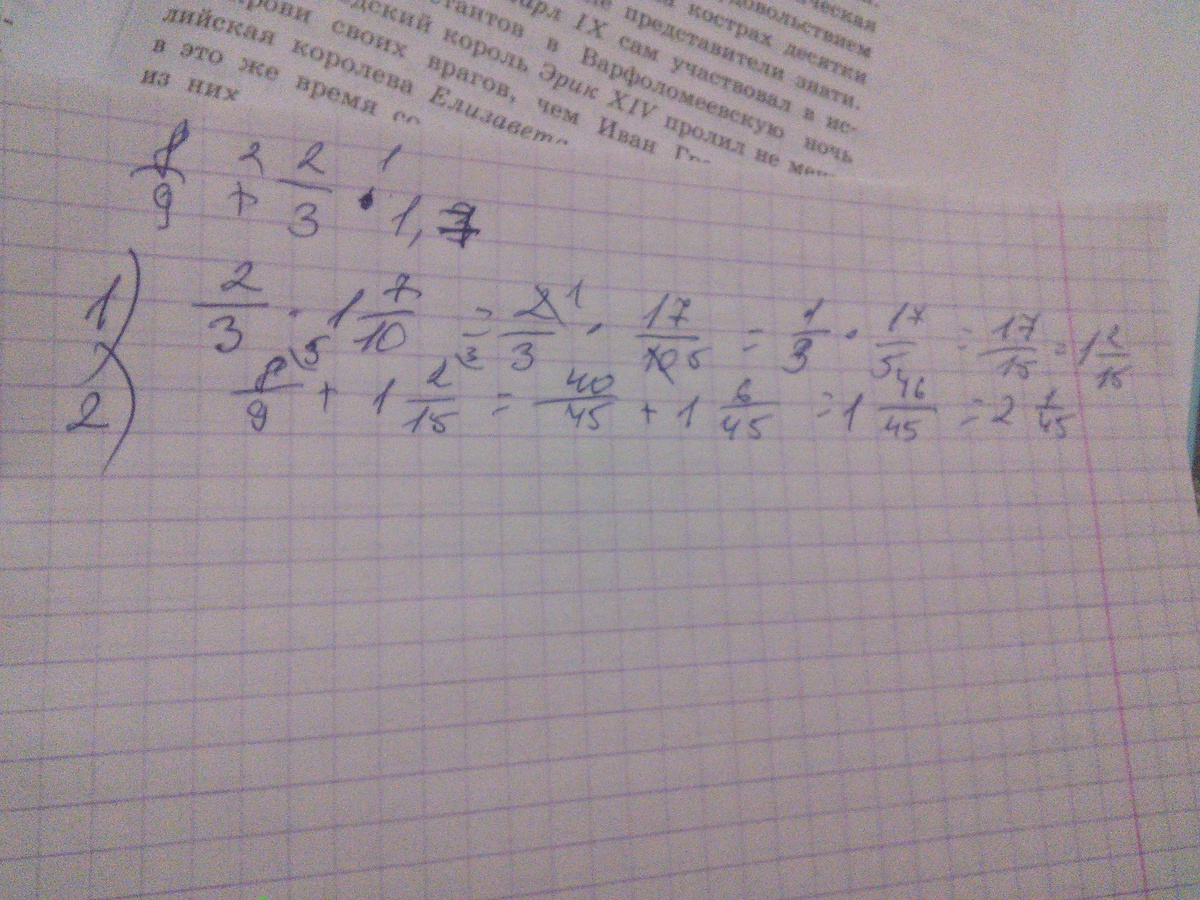 ическая
довольствием
кострах десятки
представители знати.
Карл IX сам участвовал в ис-
стантов в Варфоломеевскую ночь
дский король Эрик XIV пролил не мен
крови своих врагов, чем Иван Гр
лийская королева Елизавета
в это же время со
из них
2 1
8/9 + 2/3 · 1,7
1) 2/3 · 1 7/10 = 2/3 1 · 17/10 5 = 1/3 · 17/5 = 17/15 = 1 2/15
2) 8/9 \5 + 1 2/15 \3 = 40/45 + 1 6/45 = 1 46/45 = 2 1/45